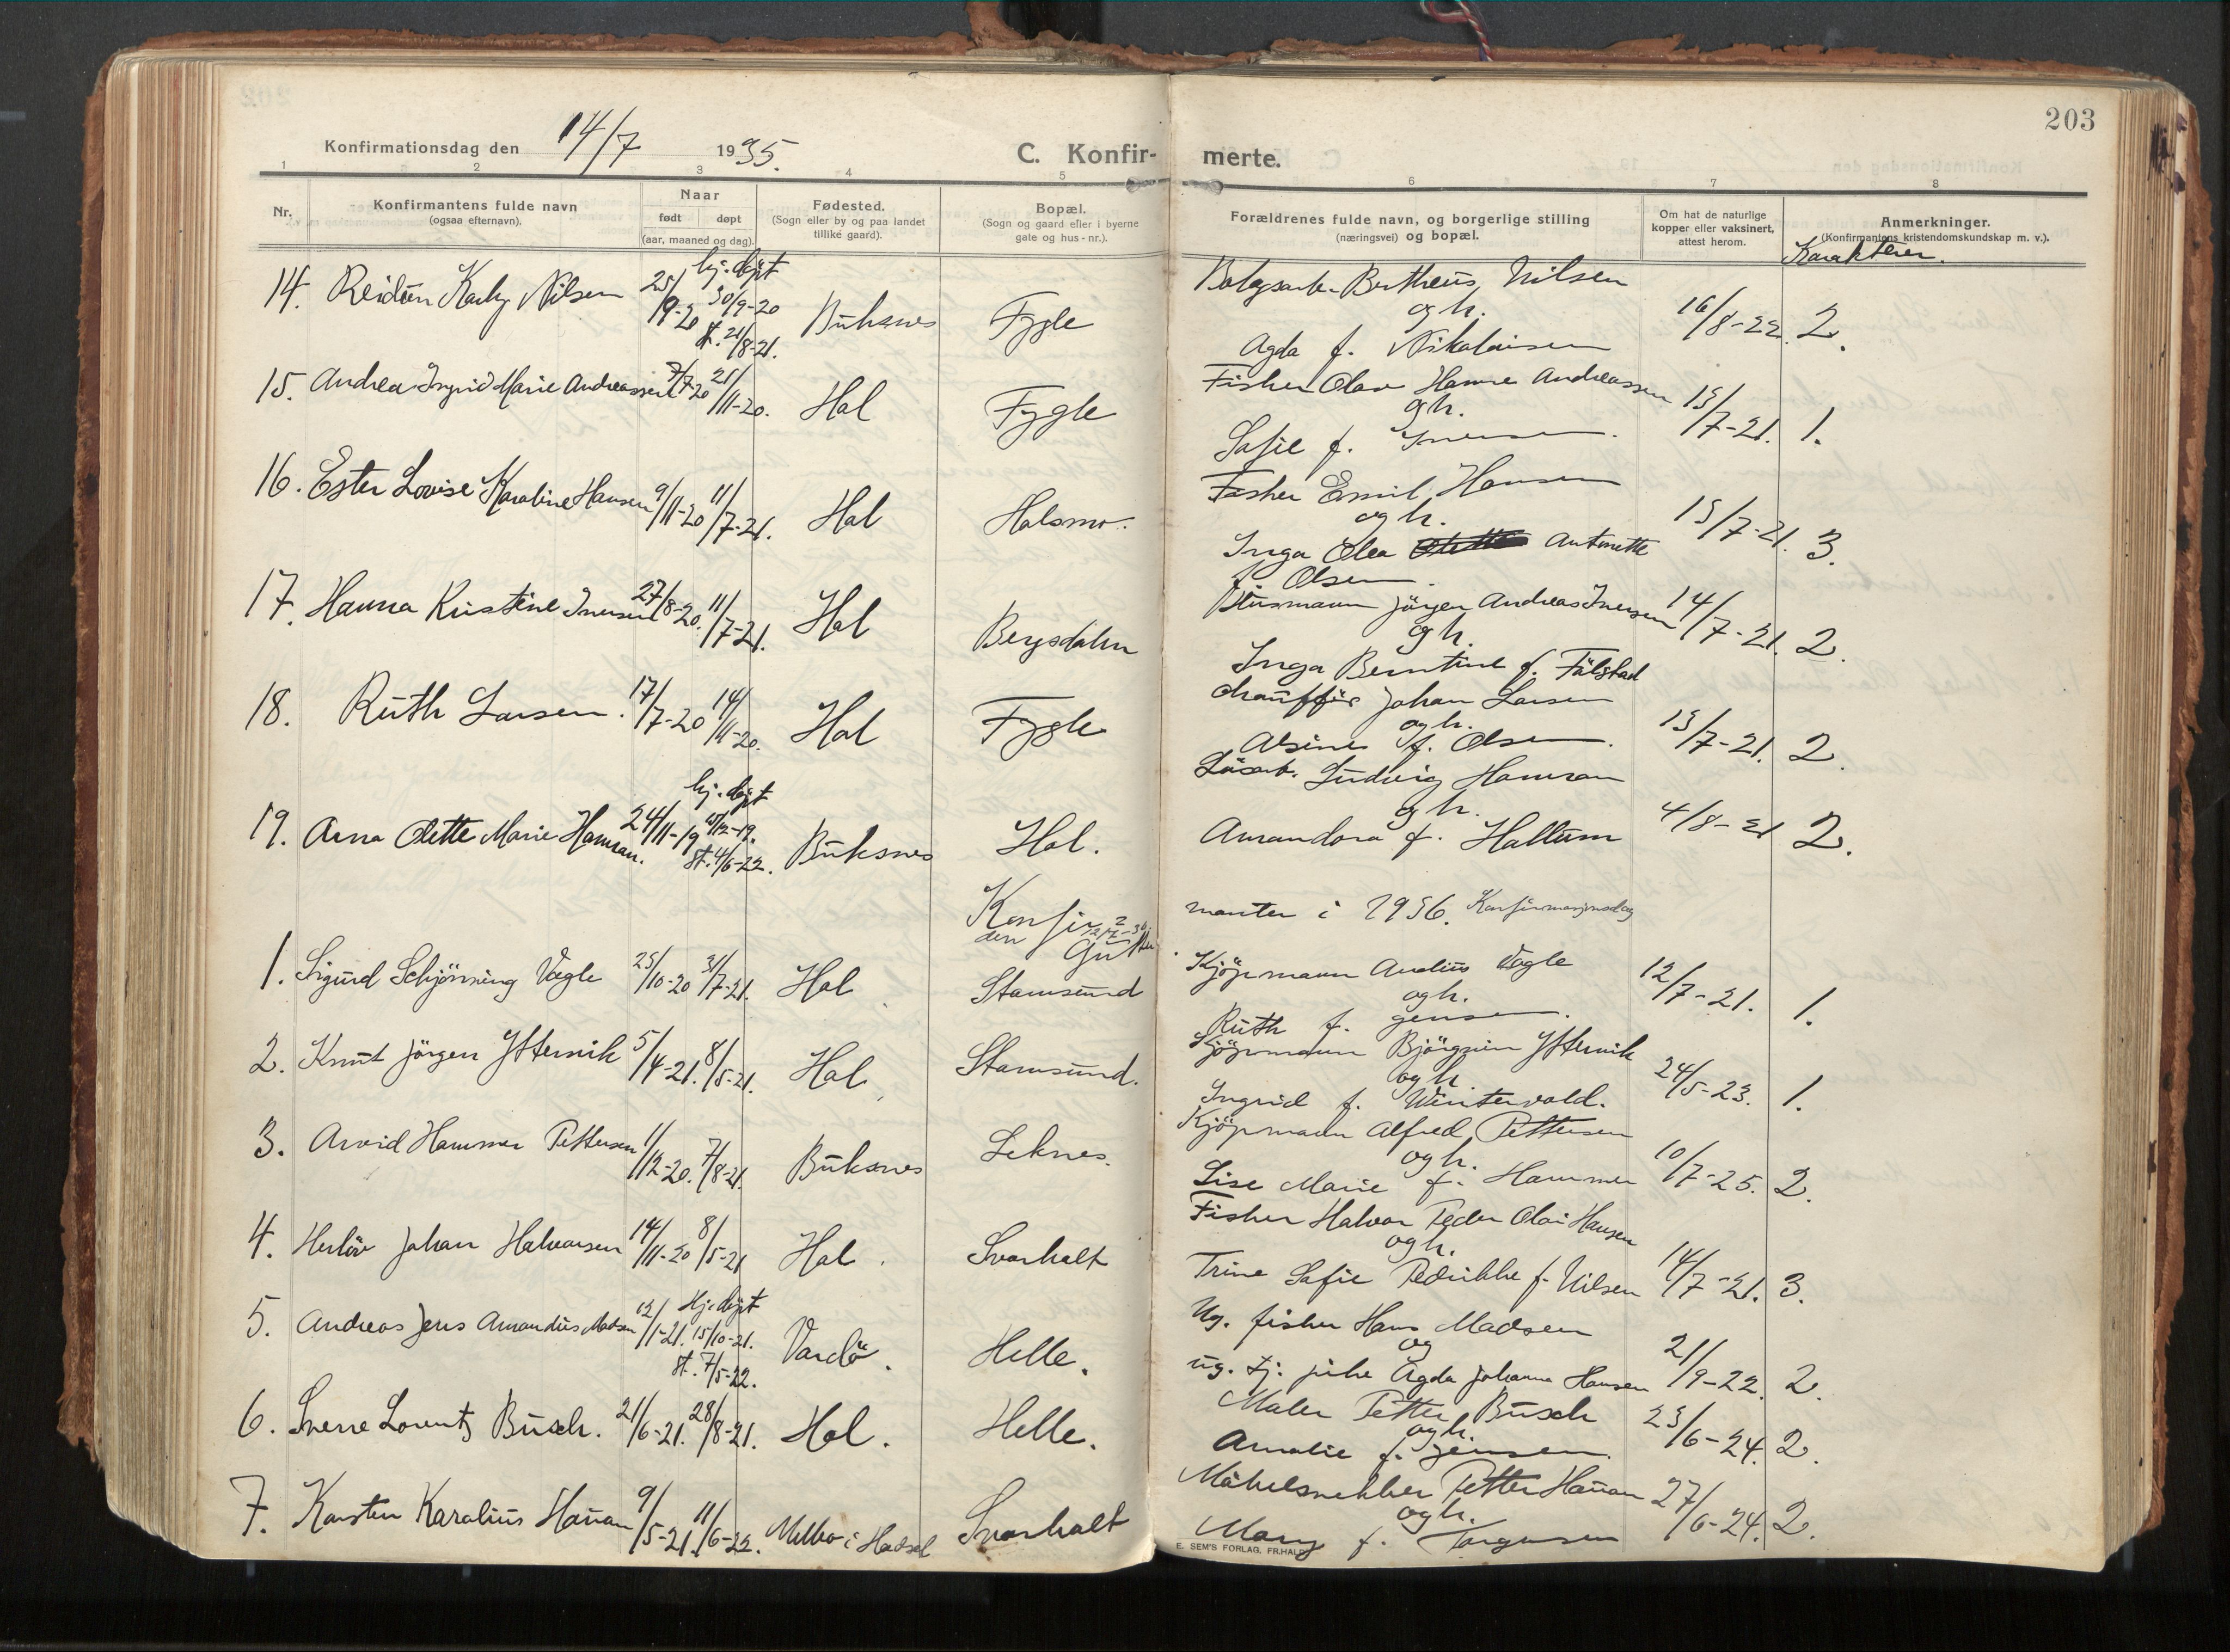 203
Konfirmationsdag den 14/7 1935.
C. Konfir- merte.
1 2 3 4 5 6 7 8
Nr. Konfirmantens fulde navn (ogsaa efternavn). Naar født døpt (aar, maaned og dag). Fødested. (Sogn eller by og paa landet tillike gaard). Bopæl. (Sogn og gaard eller i byerne gate og hus-nr.). Forældrenes fulde navn, og borgerlige stilling (næringsvei) og bopæl. Om hat de naturlige kopper eller vaksinert, attest herom. Anmerkninger. (Konfirmantens kristendomskundskap m. v.).
Karakterer.
14. Reidun Karly Nilsen 25/9-20 hj. døpt 30/9-20 st. 21/8-21. Buksnes Fygle Bertheus Nilsen og h. Agda f. Nikolaisen 16/8-22. 2.
15. Andrea Ingrid Marie Andreassen 7/7-20 21/11-20. Hol Fygle Fisker Olav Hamre Andreassen og h. Sofie f. Iversen. 15/7-21. 1.
16. Ester Lovise Karoline Hansen 9/11-20 11/7-21. Hol Holsmo. Fisker Emil Hansen og h. Inga Olea Antonette f. Olsen. 15/7-21. 3.
17. Hanna Kristine Iversen 27/8-20. 11/7-21. Hol Bergsdalen Husmann Jörgen Andreas Iversen og h. Inga Berntine f. Falstad 14/7-21. 2.
18. Ruth Larsen. 17/7-20 14/11-20. Hol Fygle Chauffør Johan Larsen og h. Alsine f. Olsen. 15/7-21. 2.
19. Arna Olette Marie Hamran. 24/11-19 hj. døpt /12-19. st. 4/6-22. Buksnes Hol. Løsarb. Ludvig Hamran og h. Amandora f. Hallum 4/8-21 2.
Konfirmanter i 1936. Konfirmasjonsdag
den 12/7-36
Gutter
1. Sigurd Schjönning Vagle 25/10-20 31/7-21. Hol Stamsund Kjöpmann Audius Vagle og h. Ruth f. Jensen. 12/7-21. 1.
2. Knut Jörgen Yttervik 5/4-21. 8/5-21. Hol Stamsund. Kjöpmann Björgvin Yttervik og h. Ingrid f. Wintervold. 24/5-23. 1.
3. Arvid Hammer Pettersen 1/12-20. 7/8-21. Buksnes Leknes. Kjöpmann Alfred Pettersen og h. Lise Marie f. Hammer 10/7-25. 2.
4. Herlöv Johan Halvorsen 14/11-20 8/5-21 Hol. Svarholt Fisker Halvor Peder Olai Hansen og h. Trine Sofie Pedrikke f. Nilsen 14/7-21. 3.
5. Andreas Jens Amandus Madsen 12/1-21. Hj. döpt 15/10-21. st. 7/5-22. Vardö. Helle. Ug. fisker Hans Madsen og ug. tj. pike Agda Johanna Hansen 21/9-22. 2.
6. Sverre Lorentz Busch. 21/6-21. 28/8-21. Hol. Helle. Maler Petter Busch og h. Amalie f. Jensen. 23/6-24. 2.
7. Karsten Karolius Hauan 9/5-21. 11/6-22. Melbo i Hadsel Svarholt Möbelsnekker Petter Hauan og h. Mary f. Torgersen 27/6-24. 2.
E. SEM'S FORLAG, FR.HALD